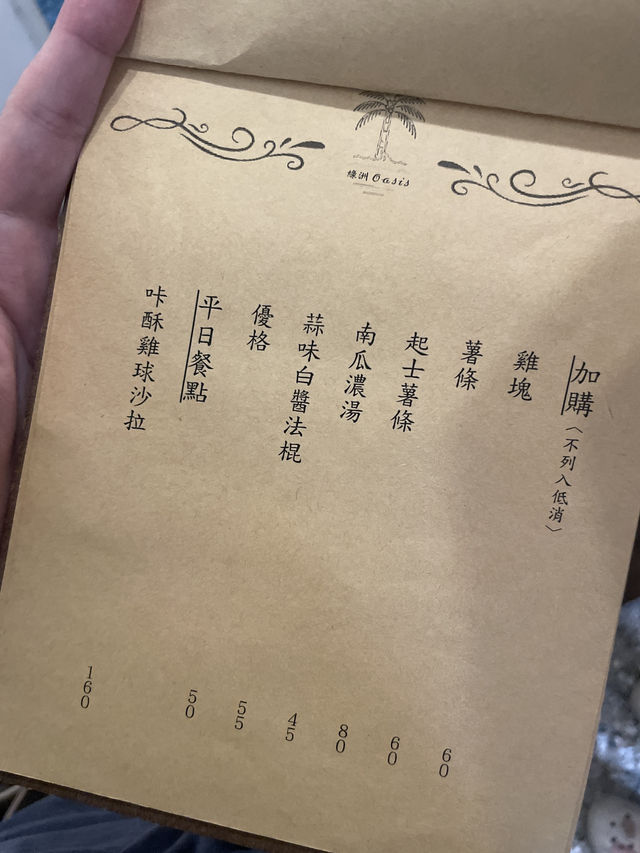 緣洲 Oasis
加購〈不列入低消〉
雞塊 60
薯條 60
起士薯條 80
南瓜濃湯 45
蒜味白醬法棍 55
優格 50
平日餐點
咔酥雞球沙拉 160